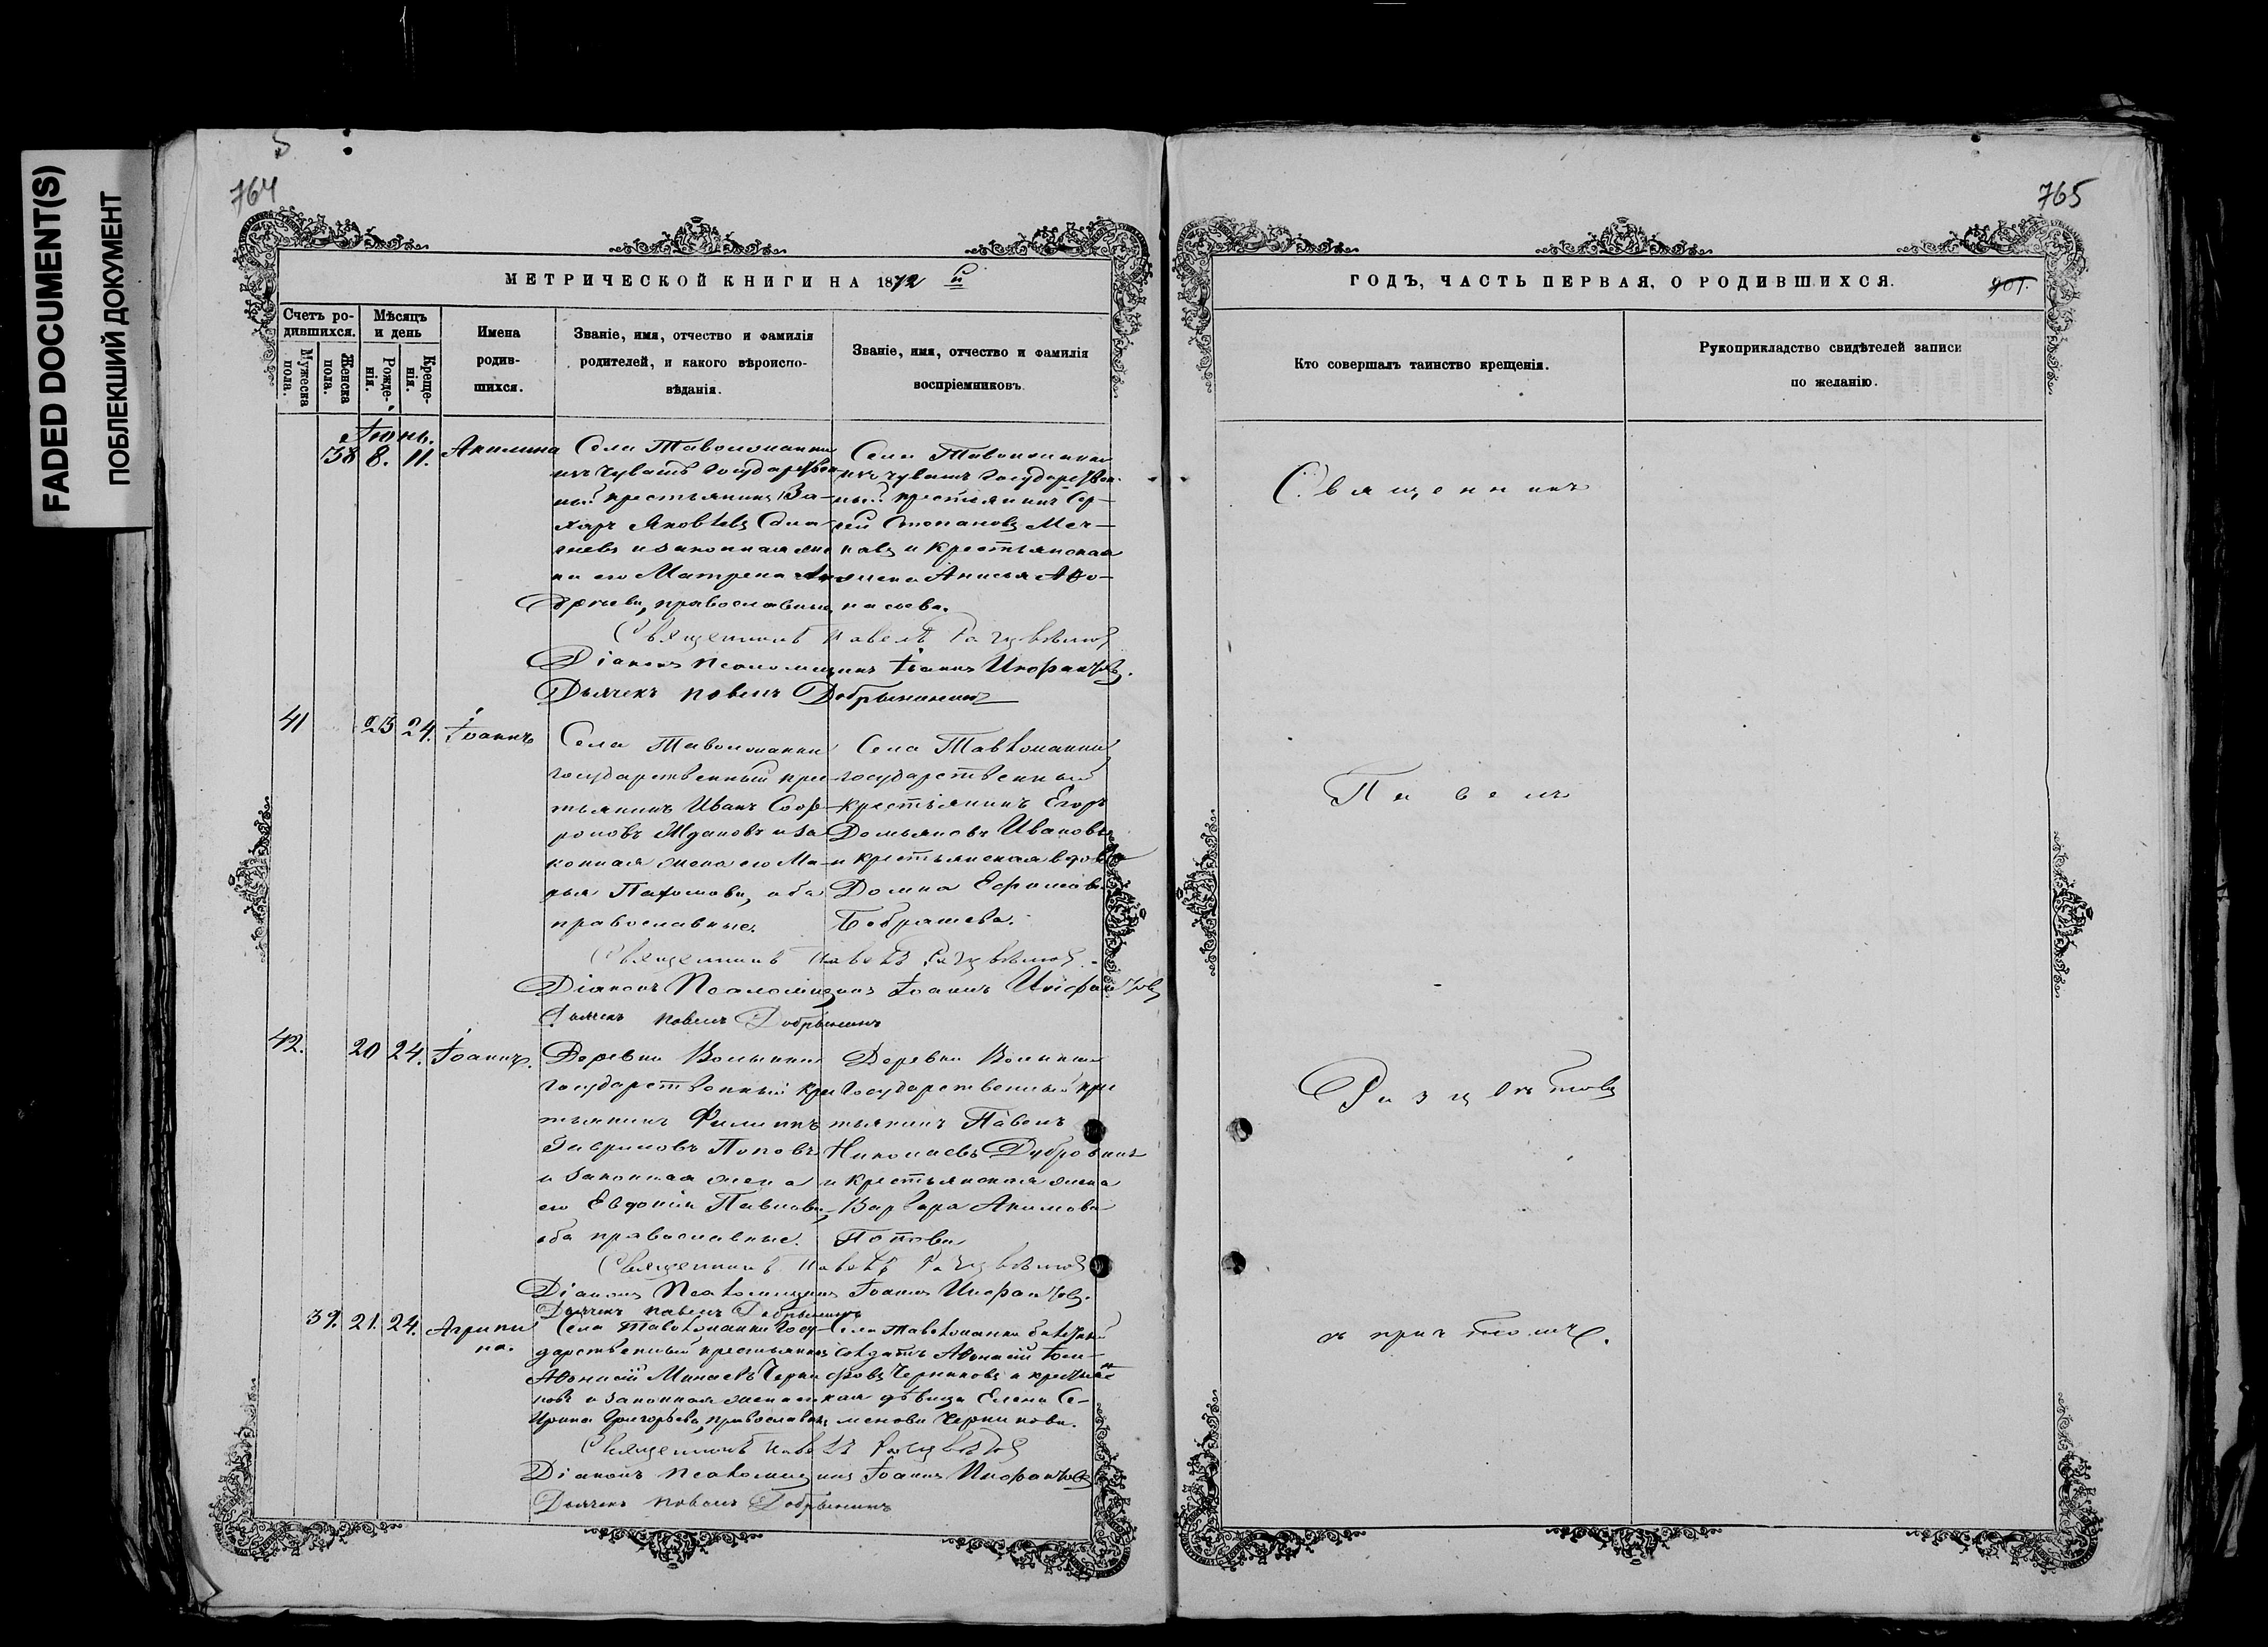 FADED DOCUMENT(S)
ПОБЛЕКШИЙ ДОКУМЕНТ
764
МЕТРИЧЕСКОЙ КНИГИ НА 1872 й
Счетъ ро-
дившихся.
Мужеска
пола.
Женска
пола.
Мѣсяцъ
и день
Рожде-
нія.
Креще-
нія.
Имена
родив-
шихся.
Званіе, имя, отчество и фамилія
родителей, и какого вѣроиспо-
вѣданія.
Званіе, имя, отчество и фамилія
воспріемниковъ.
Іюнь.
38 8. 11. Акилина
Села
изъ чувашъ государствен
ный крестьянинъ За-
харъ Яковлевъ
и законная же
на его Матрена
православные
Села
изъ чувашъ государствен
ный крестьянинъ Сер-
гей Степановъ
и крестьянская
жена Анисья
Священникъ Павелъ Разцвѣтовъ
Діаконъ Псаломщикъ Іоаннъ
Дьячекъ Павелъ Добрынинъ
41 23 24. Іоаннъ
Села
государственный крес
тьянинъ Иванъ Соф-
роновъ Ждановъ и за
конная жена его Ма-
рья Пахомова, оба
православные.
Села
государственный
крестьянинъ Егоръ
Домьяновъ Ивановъ
и крестьянская вдова
Домна
Священникъ Павелъ Разцвѣтовъ
Діаконъ Псаломщикъ Іоаннъ
Дьячекъ Павелъ Добрынинъ
42. 20 24. Іоаннъ.
Деревни
государственный крес
тьянинъ Филиппъ
Гавриловъ Поповъ
и законная жена
его Евдокія Павлова,
оба православные.
Деревни
Государственный крес
тьянинъ Павелъ
Николаевъ Дубровинъ
и крестьянская жена
Варвара Акимова
Попова
Священникъ Павелъ Разцвѣтовъ
Діаконъ Псаломщикъ Іоаннъ
Дьячекъ Павелъ Добрынинъ
39. 21. 24. Агрипи
на.
Села Госу-
дарственный крестьянинъ
Афонасій Минаевъ Черни
ковъ и законная жена его
Ирина Григорьева, православные
Села
солдатъ Афонасій
Черниковъ и крестьян
ская дѣвица Елена Се-
менова Черникова.
Священникъ Павелъ Разцвѣтовъ
Діаконъ Псаломщикъ Іоаннъ
Дьячекъ Павелъ Добрынинъ
765
ГОДЪ, ЧАСТЬ ПЕРВАЯ, О РОДИВШИХСЯ.
Кто совершалъ таинство крещенія.
Рукоприкладство свидѣтелей записи
по желанію.
Священникъ
Павелъ
Разцвѣтовъ
съ причтомъ.